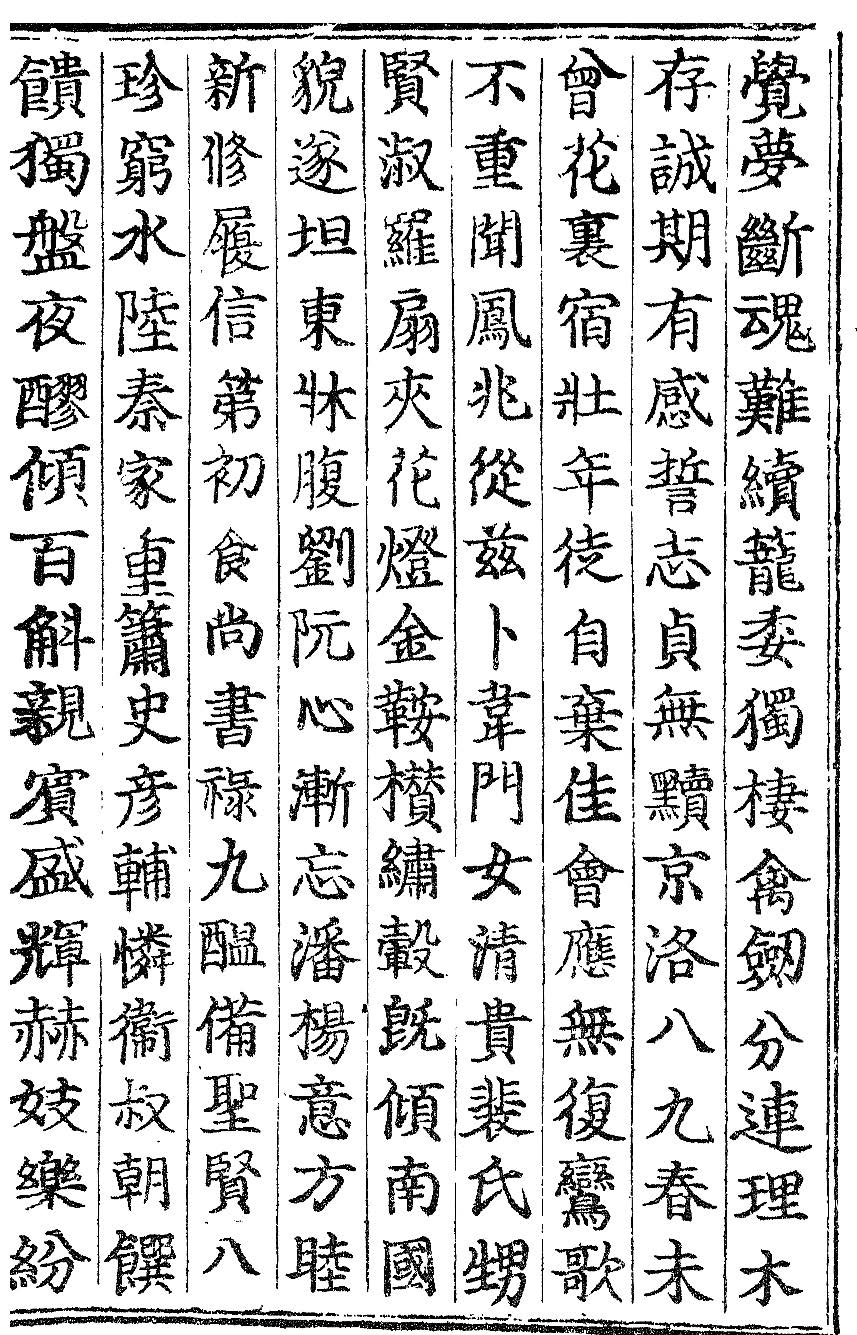 覺夢斷魂難續籠委獨棲禽劒分連理木
存誠期有感誓志貞無黷京洛八九春未
曾花裏宿壯年徒自棄佳會應無復鸞歌
不重聞鳳兆從茲卜韋門女清貴裴氏甥
賢淑羅扇夾花燈金鞍櫕繡轂旣傾南國
貌遂坦東牀腹劉阮心漸忘潘楊意方睦
新修履信第初食尚書祿九醞備聖賢八
珍窮水陸秦家重簫史彦輔憐衞叔朝饌
饋獨盤夜醪傾百斛親賓盛輝赫妓樂紛